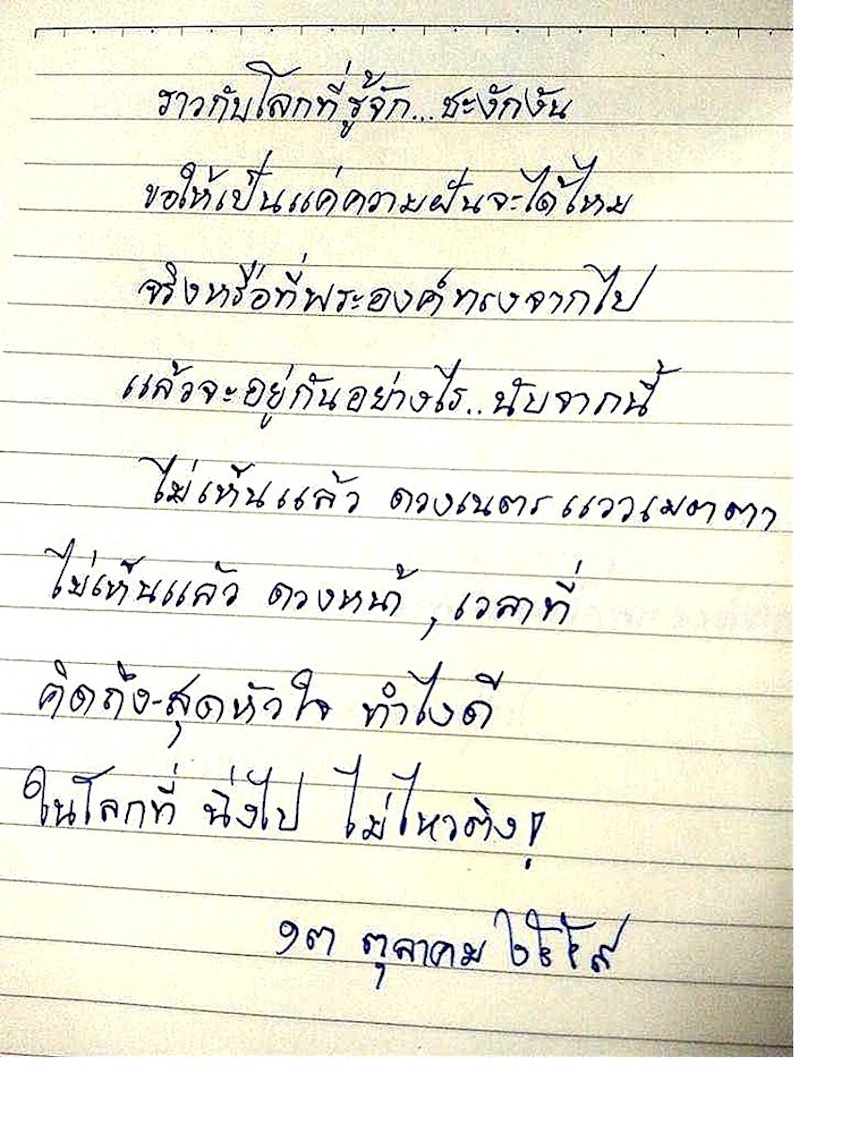 ราวกับโลกที่รู้จัก...ชะงักงัน
ขอให้เป็นแค่ความฝันจะได้ไหม
จริงหรือที่พระองค์ทรงจากไป
แล้วจะอยู่กันอย่างไร..นับจากนี้
ไม่เห็นแล้ว ดวงเนตรแววเมตตา
ไม่เห็นแล้ว ดวงหน้า , เวลาที่
คิดถึง-สุดหัวใจ ทำไงดี
ในโลกที่ นิ่งไป ไม่ไหวติง!
๑๓ ตุลาคม ๒๕๕๙